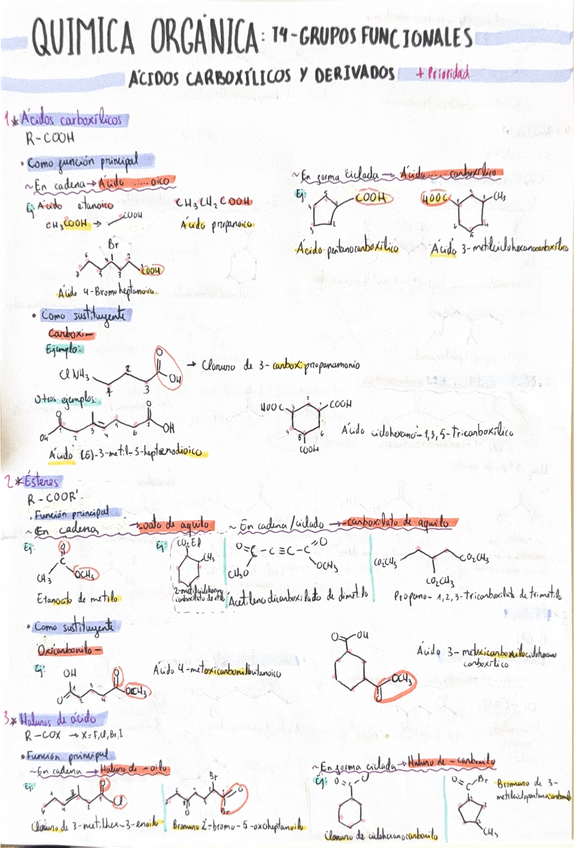 QUIMICA ORGÁNICA: T4-GRUPOS FUNCIONALES
ÁCIDOS CARBOXÍLICOS Y DERIVADOS + Prioridad
1* Ácidos carboxílicos
R-COOH
• Como función principal
~En cadena → Ácido ..... oico
Ej: Ácido etanoico
CH3COOH → COOH
CH3CH2COOH
Ácido propanoico
Br
COOH
Ácido 4-Bromoheptanoico
~En forma ciclada → Ácido .... carboxílico
Ej:
COOH
HOOC
CH3
Ácido pentanocarboxílico
Ácido 3-metilciclohexanocarboxílico
• Como sustituyente
Carboxi-
Ejemplo:
Cl NH3
O
OH
→ Cloruro de 3-carboxipropanamonio
Otros ejemplos:
O
OH
O
OH
Ácido (E)-3-metil-3-heptenodioico
HOOC
COOH
COOH
Ácido ciclohexano-1,3,5-tricarboxílico
2* Ésteres
R-COOR'
Función principal
~En cadena → oato de aquilo
~En cadena/ciclado → carboxilato de aquilo
Ej:
O
C
CH3
OCH3
Etanoato de metilo
Ej:
CH3
O
C-C≡C-C
O
CH3O
OCH3
Acetileno dicarboxilato de dimetilo
CO2CH3
CO2CH3
CO2CH3
Propano-1,2,3-tricarboxilato de trimetilo
• Como sustituyente
Oxicarbonilo-
Ej:
OH
O
O
OCH3
Ácido 4-metoxicarbonilobutanoico
O
OH
OCH3
O
Ácido 3-metoxicarbonilociclohexano
carboxílico
3* Haluros de ácido
R-COX → X=F,Cl,Br,I
• Función principal
~En cadena → Haluro de -oilo
Ej:
O
Cl
Cloruro de 3-metilhex-3-enoilo
Br
O
Bromuro 2-bromo-5-oxoheptanoilo
~En forma ciclada → Haluro de -carbonilo
Ej:
O
C
Cl
Cloruro de ciclohexanocarbonilo
O
C
Br
CH3
Bromuro de 3-
metilciclopentanocarbonilo